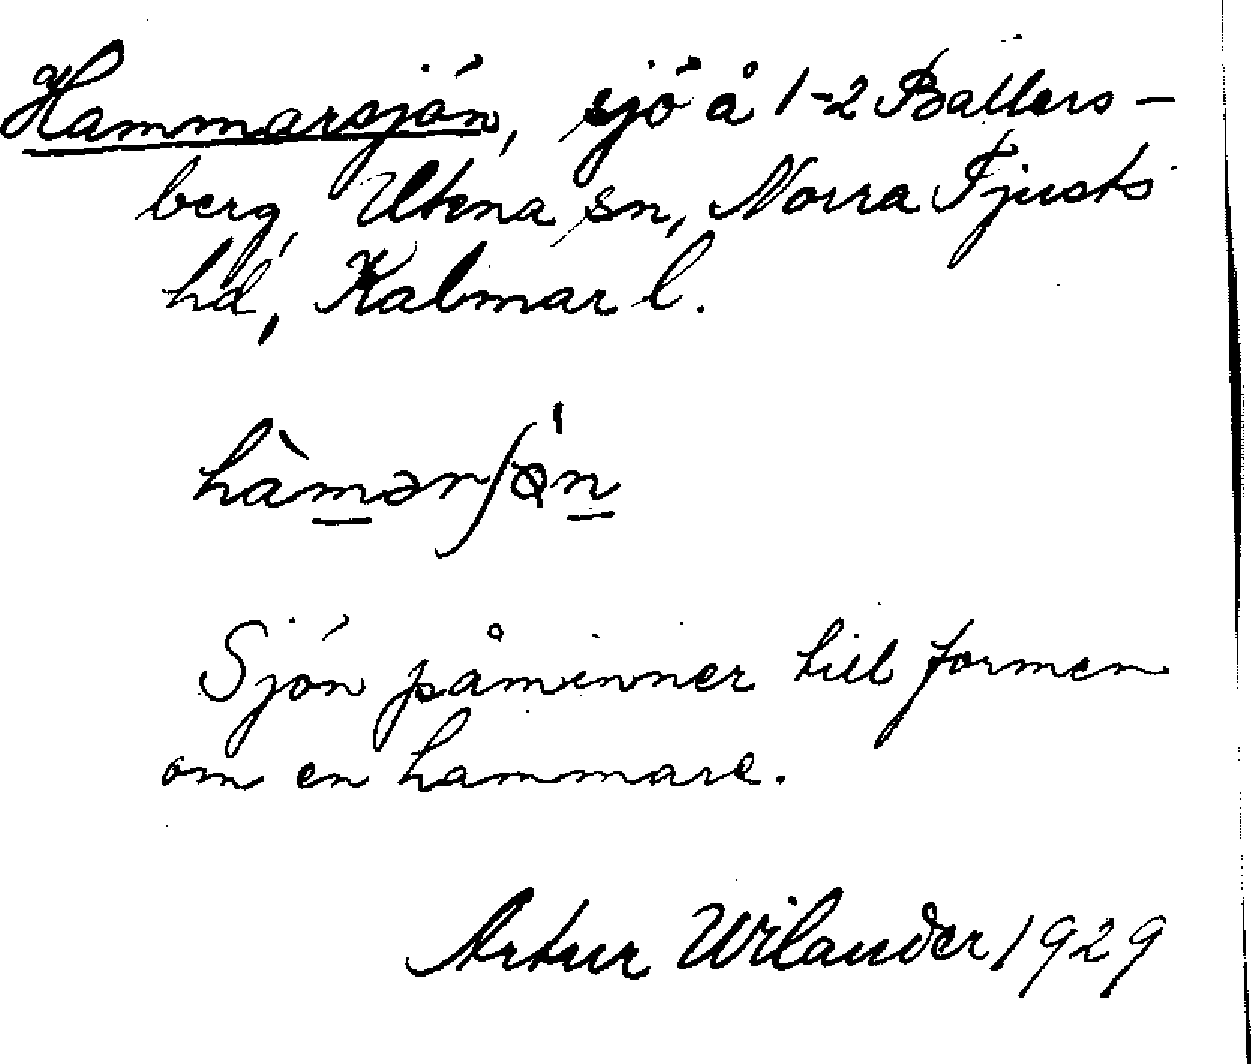 Hammarsjön, sjö å 1-2 Ballers-
berg, Ukna sn, Norra Tjusts
hd, Kalmar l.
hàmərʃø̍n
Sjön påminner till formen
om en hammare.
Artur Wilander 1929